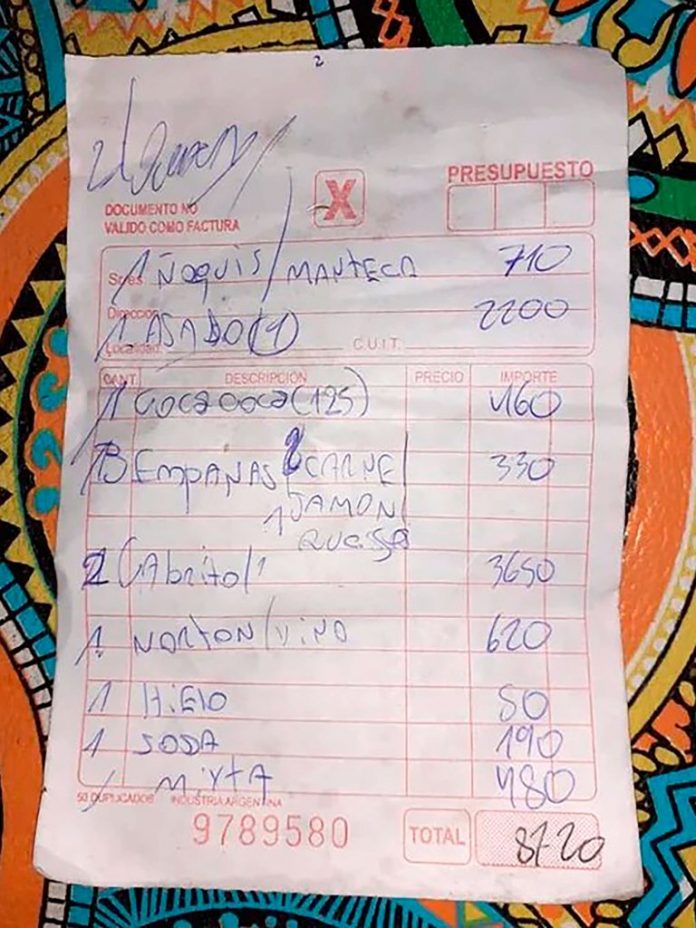 2
PRESUPUESTO
X
DOCUMENTO NO
VALIDO COMO FACTURA
Sres.
1 ÑOQUIS / MANTECA 710
Dirección
1 ASADO (1) 2200
Localidad C.U.I.T.
CANT. DESCRIPCIÓN PRECIO IMPORTE
1 COCA COCA (125) 460
3 EMPANAS 2 CARNE 330
1 JAMON
QUESSO
2 CABRITO/ 3650
1 NORTON/VINO 620
1 HIELO 50
1 SODA 190
MIXTA 480
50 DUPLICADOS INDUSTRIA ARGENTINA
9789580 TOTAL 8720